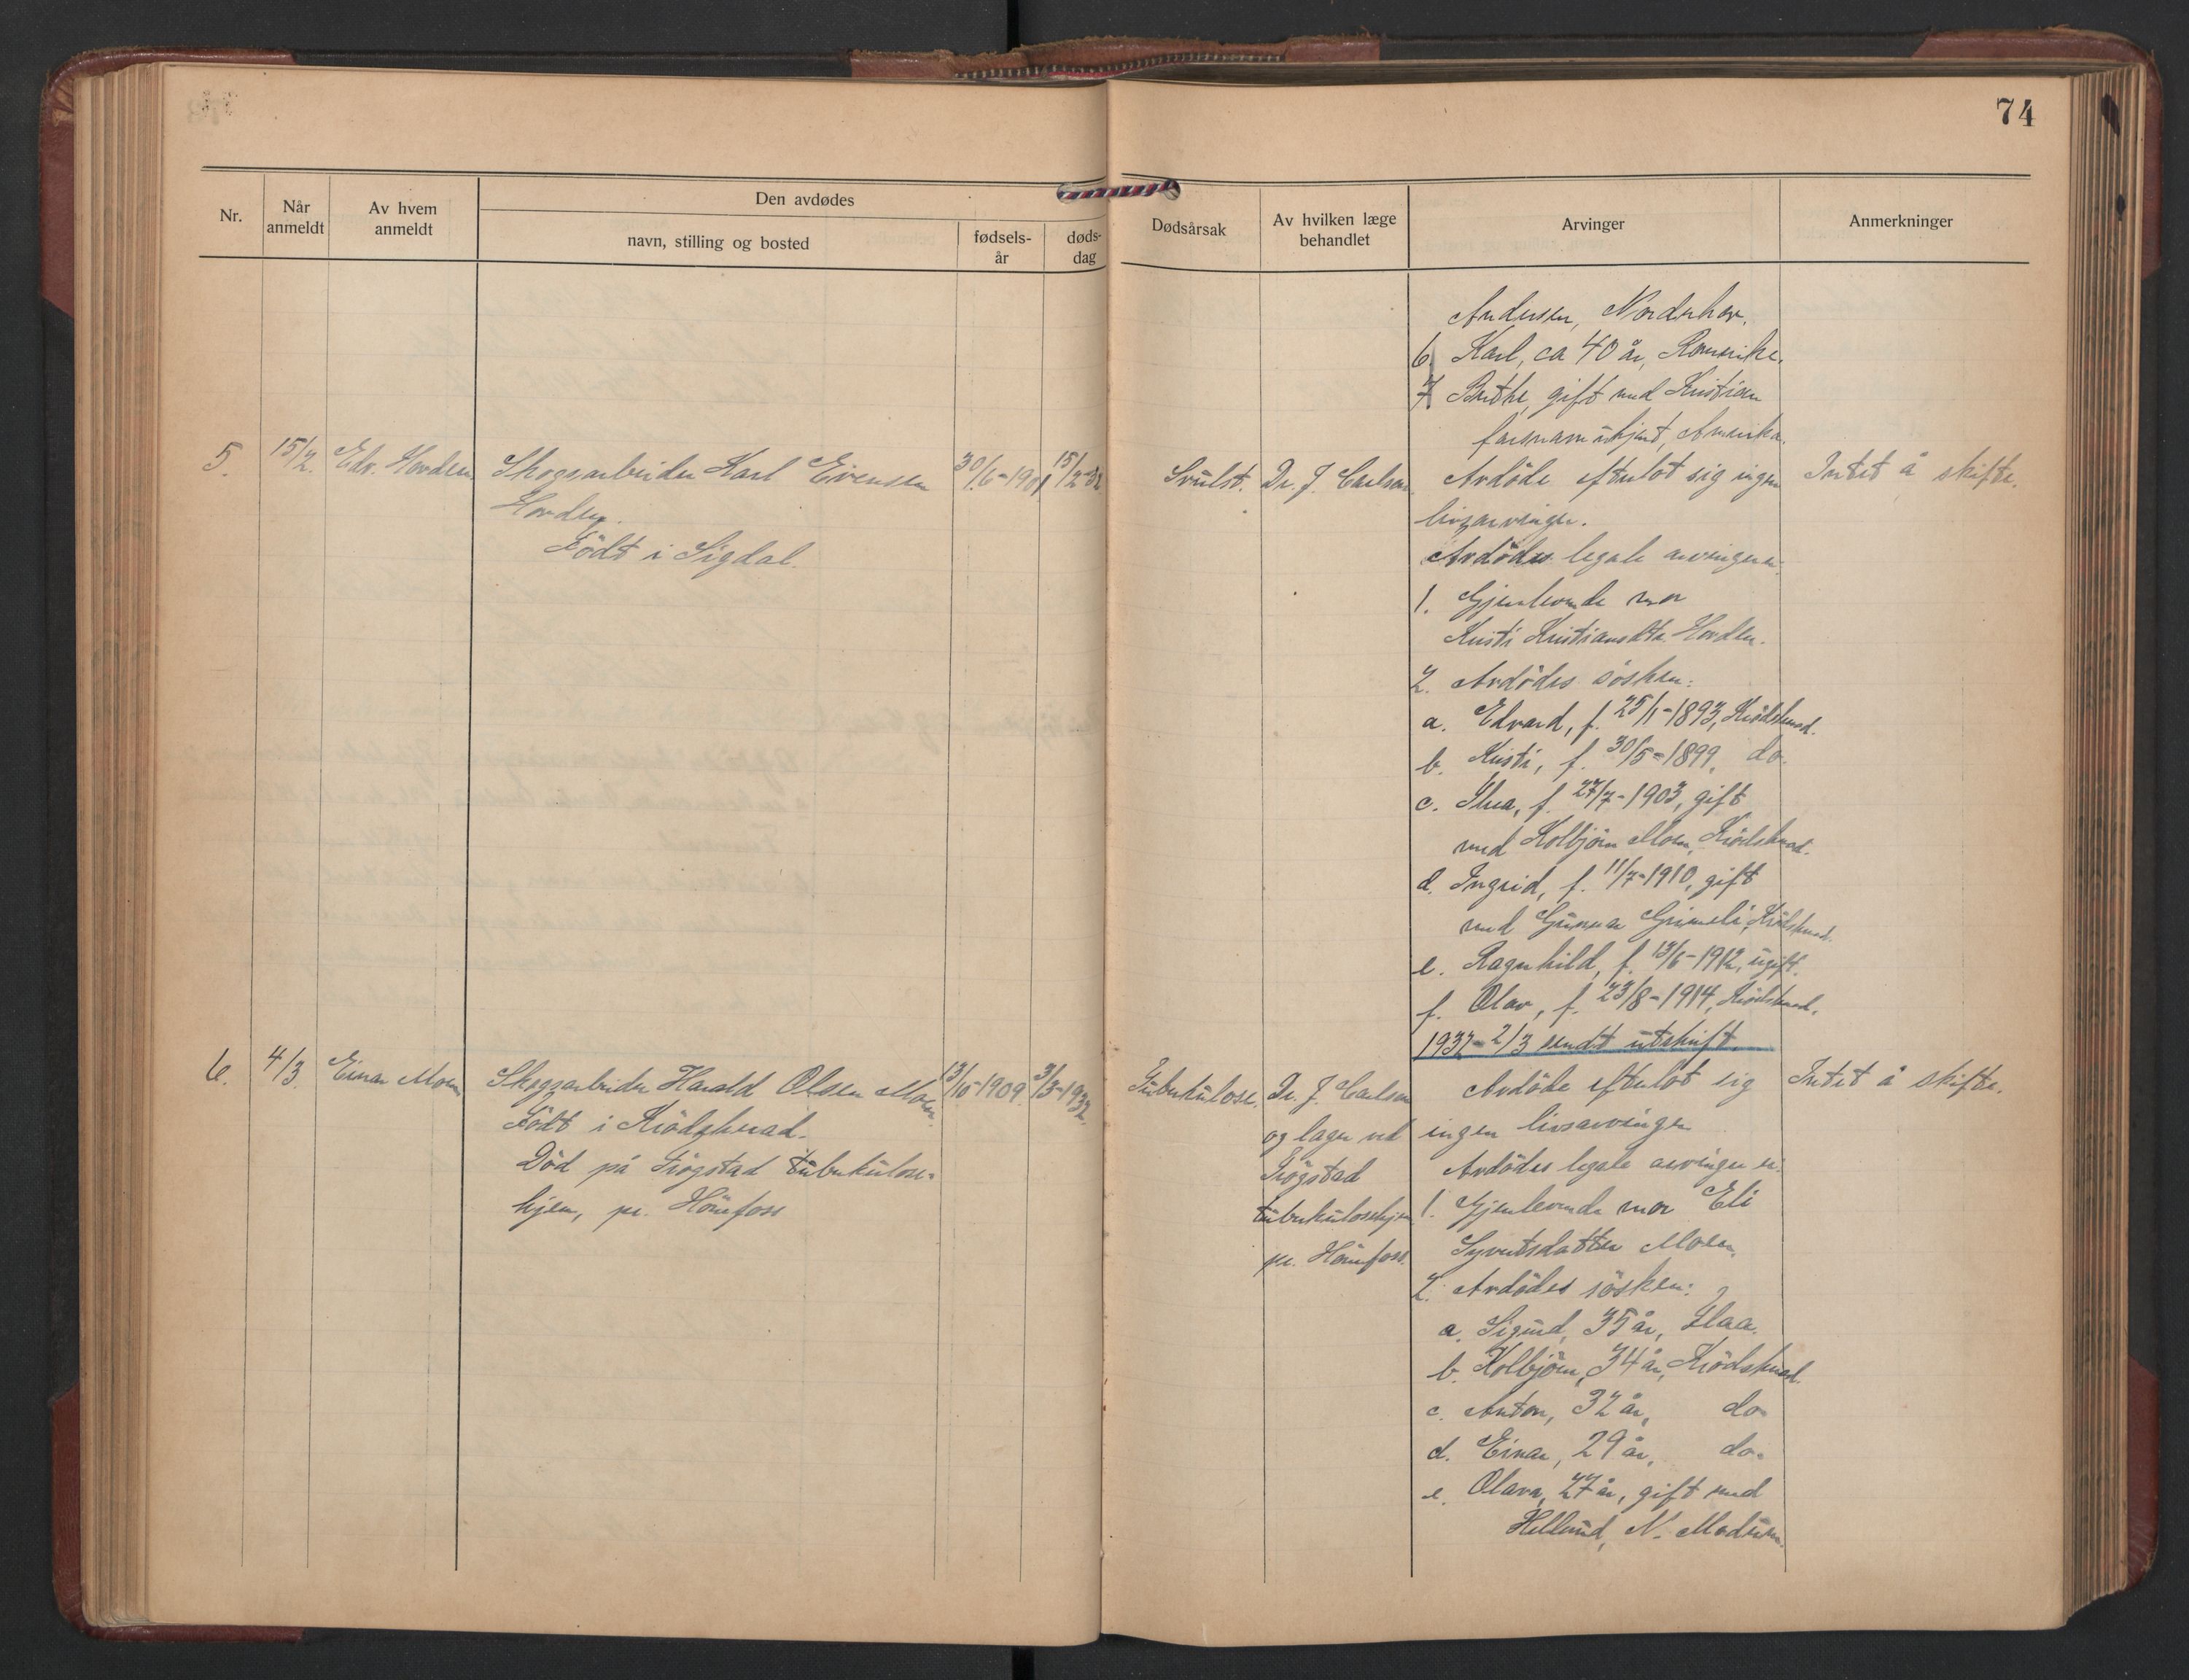 74
Nr.
Når anmeldt
Av hvem anmeldt
Den avdødes
navn, stilling og bosted
fødsels-år
døds-dag
Dødsårsak
Av hvilken læge behandlet
Arvinger
Anmerkninger
Andersen, Norderhov.
6) Karl, ca 40 år, Romerike.
7) Berthe, gift med Kristian
farsnavn ukjent, Amerika.
5. 15/2. Edv. Hovden Skogsarbeider Karl Evensen 30/6-1901 15/2-32
Hovden.
Født i Sigdal.
Svulst. Dr. J. Carlsen. Avdøde efterlot sig ingen Intet å skifte.
livsarvinger.
Avdødes legale arvinger er:
1. Gjenlevende mor
Kristi Kristiansdtr. Hovden.
2. Avdødes søsken:
a. Edvard, f. 25/1-1893, Krødsherad.
b. Kristi, f. 30/5-1899, do.
c. Thea, f. 27/7-1903, gift
med Kolbjørn Moen, Krødsherad.
d. Ingrid, f. 11/7-1910, gift
med Gunnar Grimeli, Krødsherad.
e. Ragnhild, f. 13/6-1912, ugift.
f. Olav, f. 23/8-1914, Krødsherad.
1932-2/3 sendt utskrift.
6. 4/3. Einar Moen Skogsarbeider Harald Olsen Moen 13/10-1909. 3/3-1932.
Født i Krødsherad.
Død på Trøgstad tuberkulose-
hjem, pr. Hønefoss
Tuberkulose. Dr. J. Carlsen Avdøde efterlot sig Intet å skifte.
og læge ved ingen livsarvinger
Trøgstad Avdødes legale arvinger er:
tuberkulosehjem 1. Gjenlevende mor Eli
pr. Hønefoss. Syvertsdatter Moen.
2. Avdødes søsken:
a. Sigurd, 35 år, Flaa.
b. Kolbjørn, 34 år, Krødsherad.
c. Anton, 32 år, do.
d. Einar, 29 år, do.
e. Olava, 27 år, gift med
Hellerud, N. Modum.